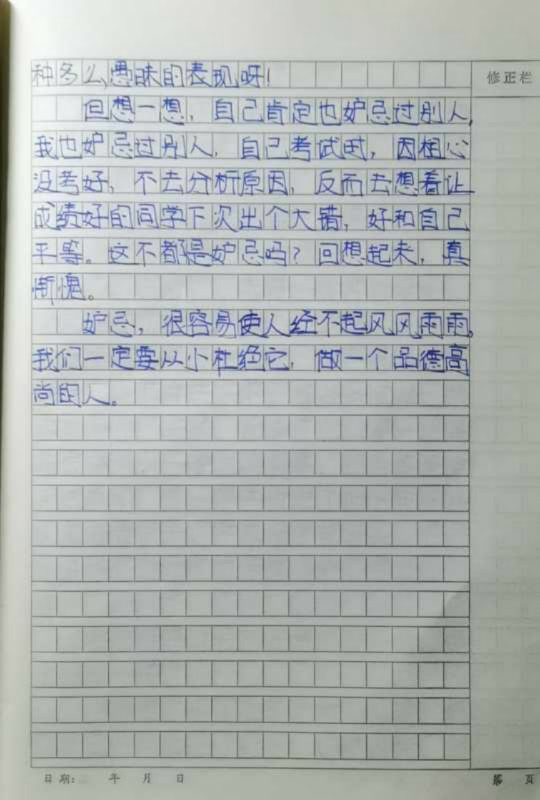 种多么愚昧的表现呀!
修正栏
但想一想，自己肯定也妒忌过别人，
我也妒忌过别人，自己考试时，因粗心
没考好，不去分析原因，反而去想着让
成绩好的同学下次出个大错，好和自己
平等。这不都是妒忌吗？回想起来，真
惭愧。
妒忌，很容易使人经不起风风雨雨。
我们一定要从小杜绝它，做一个品德高
尚的人。
日期： 年 月 日
第 页